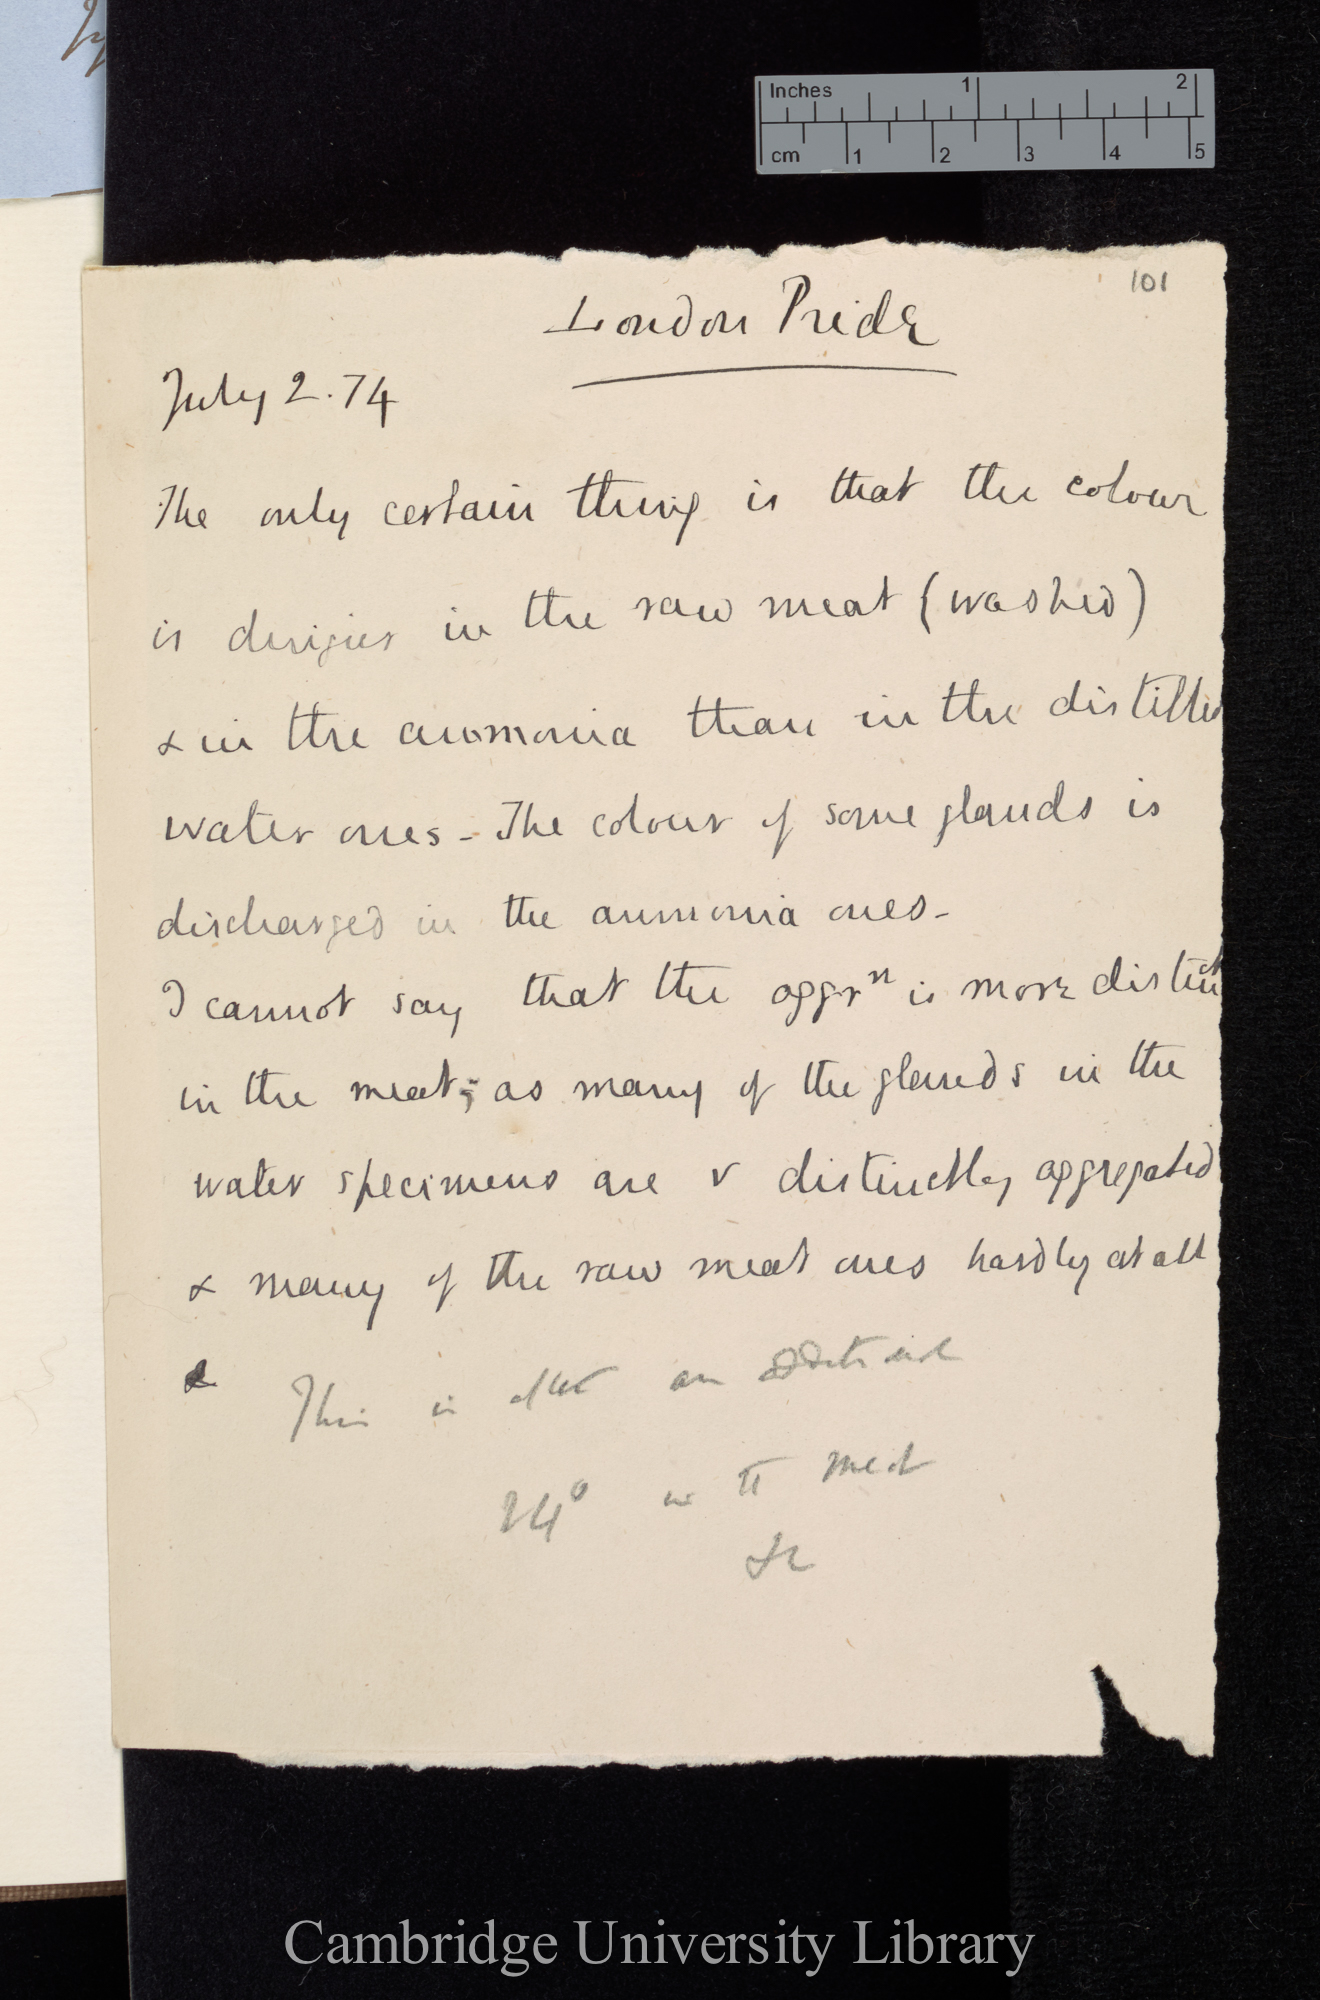 Inches 1 2
cm 1 2 3 4 5
101
London Pride
July 2. 74
The only certain thing is that the colour
is dingier in the raw meat (washed)
& in the ammonia than in the distilled
water ones - The colour of some glands is
discharged in the ammonia ones -
I cannot say that the aggrn is more distinct
in the meat; as many of the glands in the
water specimens are v distinctly aggregated
& many of the raw meat ones hardly at all
This is after an additional
24° in the meat
&c
Cambridge University Library